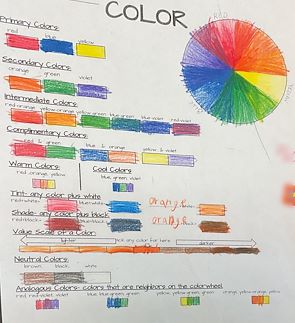 COLOR
RED
Primary Colors:
red blue yellow
Secondary Colors:
orange green violet
Intermediate Colors:
red orange yellow orange yellow green blue green blue violet red violet
Complimentary Colors:
red & green blue & orange yellow & violet
Warm Colors: Cool Colors
red, orange, yellow blue, green, violet
Tint- any color plus white
red+white= blue+white= orange
Shade- any color plus black
red+black= blue+black= orange
Value Scale of a Color:
lighter pick any color for here darker
Neutral Colors:
brown black white
Analogous Colors- colors that are neighbors on the colorwheel
red, red violet, violet blue, blue green, green yellow, yellow green, green orange, yellow orange, yellow